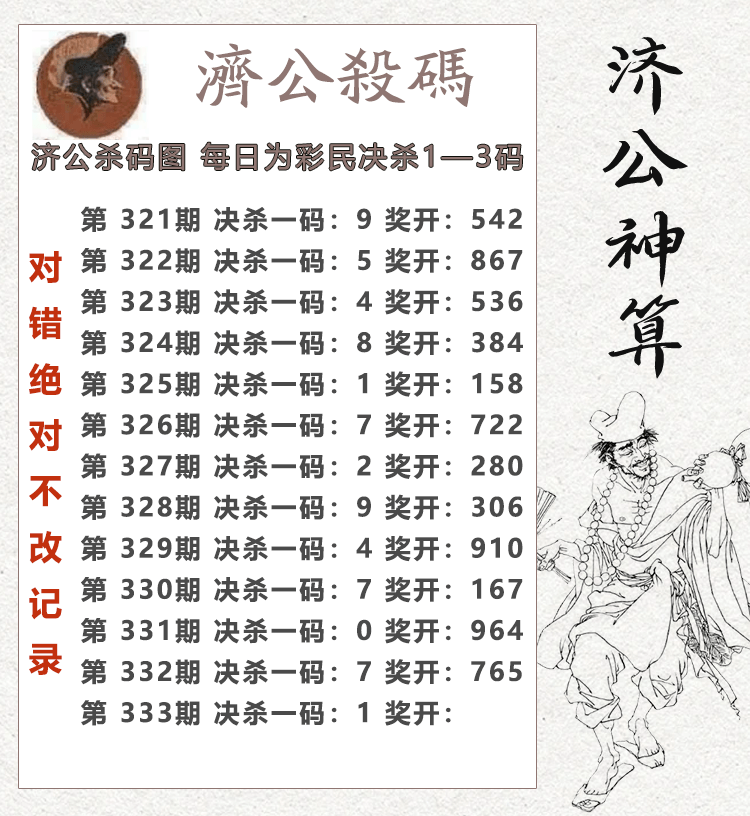 濟公殺碼
济公杀码图 每日为彩民决杀1—3码
第 321期 决杀一码：9 奖开：542
第 322期 决杀一码：5 奖开：867
第 323期 决杀一码：4 奖开：536
第 324期 决杀一码：8 奖开：384
第 325期 决杀一码：1 奖开：158
第 326期 决杀一码：7 奖开：722
第 327期 决杀一码：2 奖开：280
第 328期 决杀一码：9 奖开：306
第 329期 决杀一码：4 奖开：910
第 330期 决杀一码：7 奖开：167
第 331期 决杀一码：0 奖开：964
第 332期 决杀一码：7 奖开：765
第 333期 决杀一码：1 奖开：
对错绝对不改记录
济公神算